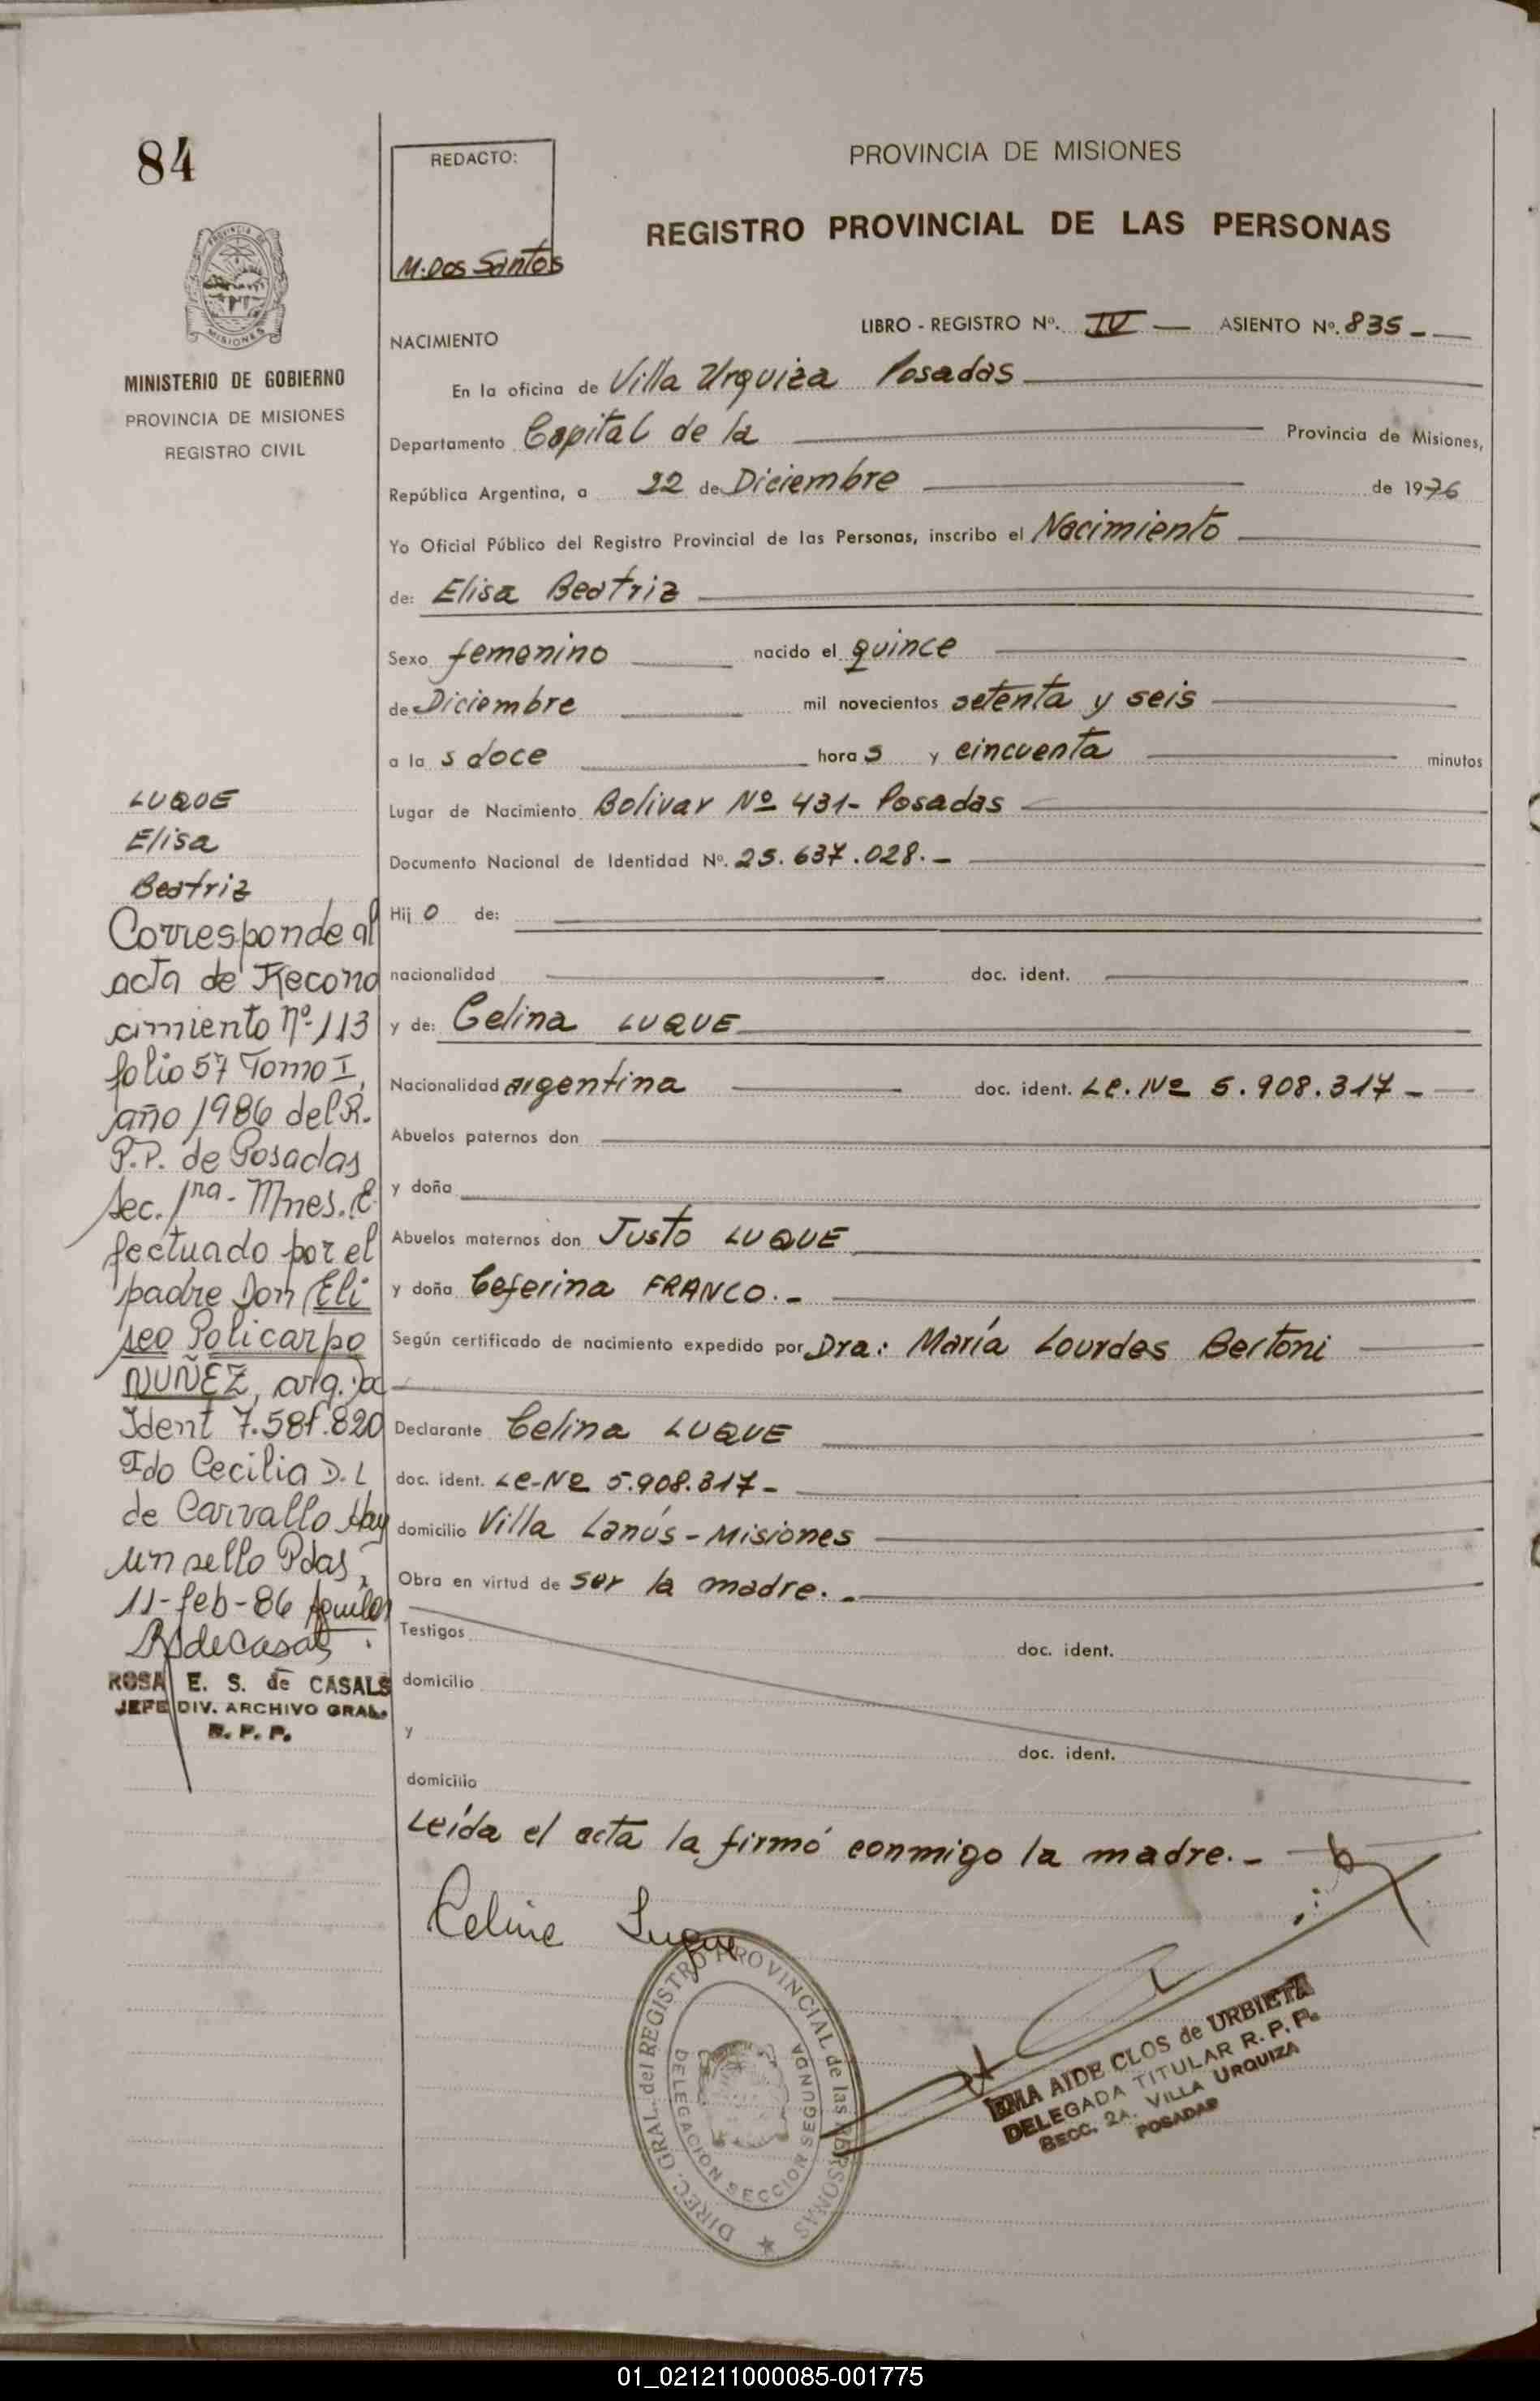 84
REDACTO:
M. Dos Santos
PROVINCIA DE MISIONES
REGISTRO PROVINCIAL DE LAS PERSONAS
PROVINCIA DE MISIONES
MINISTERIO DE GOBIERNO
PROVINCIA DE MISIONES
REGISTRO CIVIL
LIBRO - REGISTRO Nº. IV — ASIENTO Nº. 835 -
NACIMIENTO
En la oficina de Villa Urquiza Posadas
Departamento Capital de la Provincia de Misiones,
República Argentina, a 22 de Diciembre de 1976
Yo Oficial Público del Registro Provincial de las Personas, inscribo el Nacimiento
de: Elisa Beatriz
Sexo femenino nacido el quince
de Diciembre mil novecientos setenta y seis
a la s doce hora s y cincuenta minutos
Lugar de Nacimiento Bolivar Nº 431- Posadas
Documento Nacional de Identidad Nº. 25.637.028.-
Hij o de:
nacionalidad doc. ident.
y de: Celina LUQUE
Nacionalidad argentina doc. ident. Lc. Nº 5.908.317 -
Abuelos paternos don
y doña
Abuelos maternos don Justo LUQUE
y doña Ceferina FRANCO.-
Según certificado de nacimiento expedido por Dra: María Lourdes Bertoni
Declarante Celina LUQUE
doc. ident. Lc-Nº 5.908.317-
domicilio Villa Lanús - Misiones
Obra en virtud de ser la madre.-
Testigos doc. ident.
domicilio
y doc. ident.
domicilio
Leída el acta la firmó conmigo la madre.-
Celina Luque
LUQUE
Elisa
Beatriz
Corresponde al
acta de Recono
cimiento Nº 113
folio 57 Tomo I,
año 1986 del R.
P.P. de Posadas
Sec. 1ra - Mnes. E
fectuado por el
padre Don Eli
seo Policarpo
NUÑEZ, arg.
Ident 7.581.820
Fdo Cecilia D. L
de Carvallo Hay
un sello Pdas,
11-feb-86
R S de Casals
ROSA E. S. de CASALS
JEFE DIV. ARCHIVO GRAL.
R. P. P.
DIREC. GRAL. del REGISTRO PROVINCIAL de las PERSONAS
DELEGACION SECCION SEGUNDA
EMA AIDE CLOS de URBIETA
DELEGADA TITULAR R. P. P.
SECC. 2A. VILLA URQUIZA
POSADAS
01_021211000085-001775